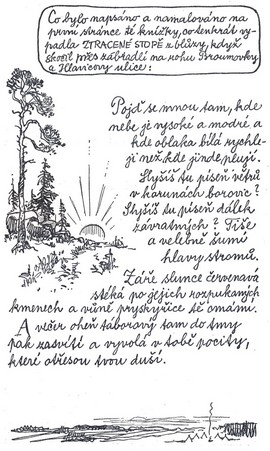 Co bylo napsáno a namalováno na
první stránce té knížky, co tenkrát vy-
padla ZTRACENÉ STOPĚ z blůzky, když
skočil přes zábradlí na rohu Broumovky
a Hlavicovy ulice:
Pojď se mnou tam, kde
nebe je vysoké a modré a
kde oblaka bílá rychle-
ji než kde jinde plují.
Slyšíš tu píseň větrů
v korunách borovic?
Slyšíš tu píseň dálek
závratných? Tiše
a velebně šumí
hlavy stromů.
Záře slunce červenavá
stéká po jejich rozpukaných
kmenech a vůně pryskyřice tě omámí.
A večer oheň táborový tam do tmy
pak zasvítí a vyvolá v tobě pocity,
které otřesou tvou duší.